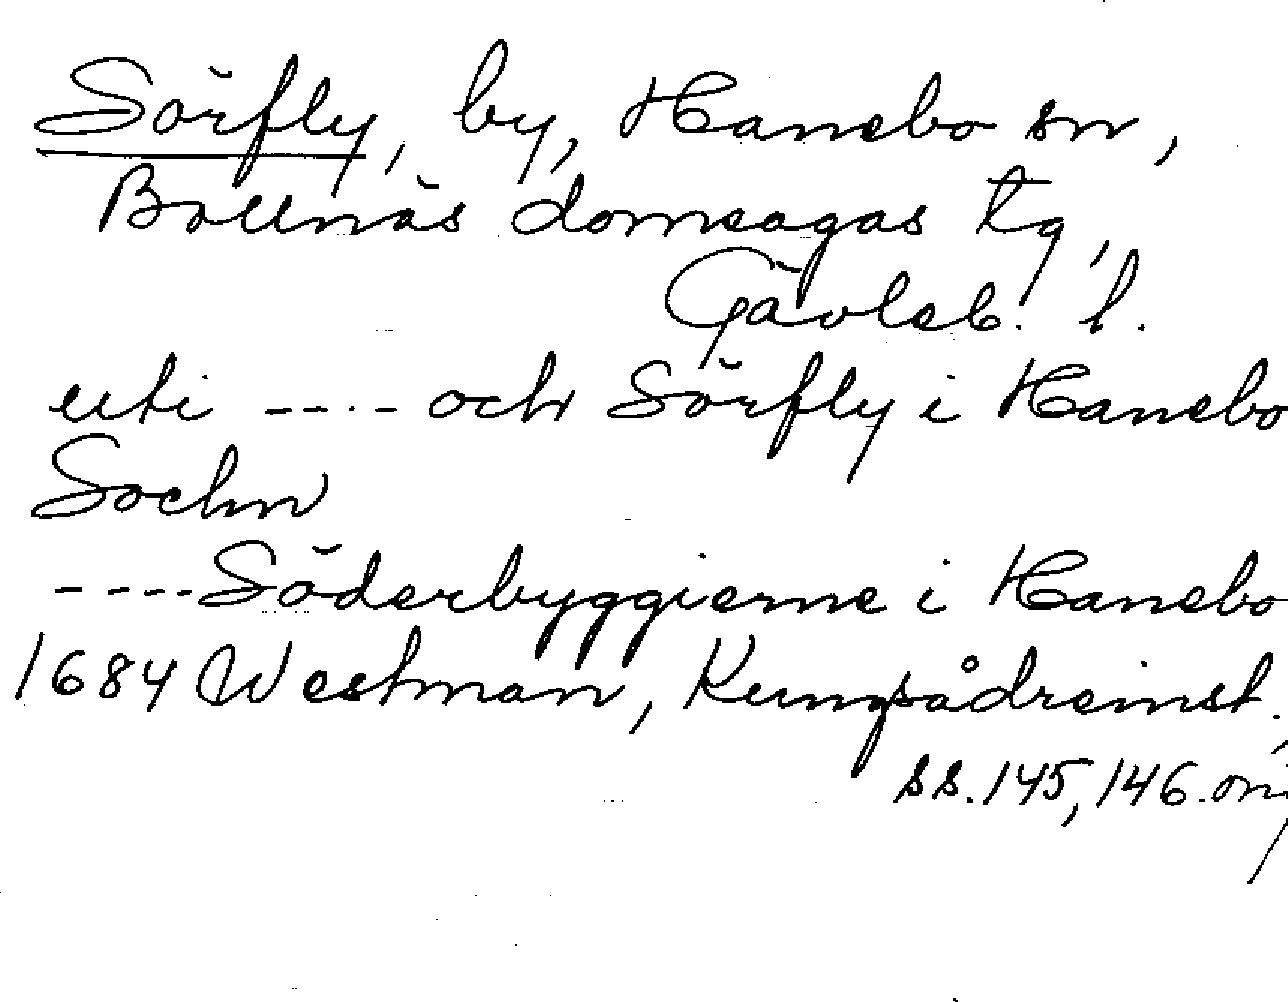 Sörfly, by, Hanebo sn,
Bollnäs domsagas tg,
Gävleb. l.
uti ----- och Sörfly i Hanebo
Sochn
----Söderbyggierne i Hanebo
1684 Westman, Kungsådreinst.,
ss. 145, 146.